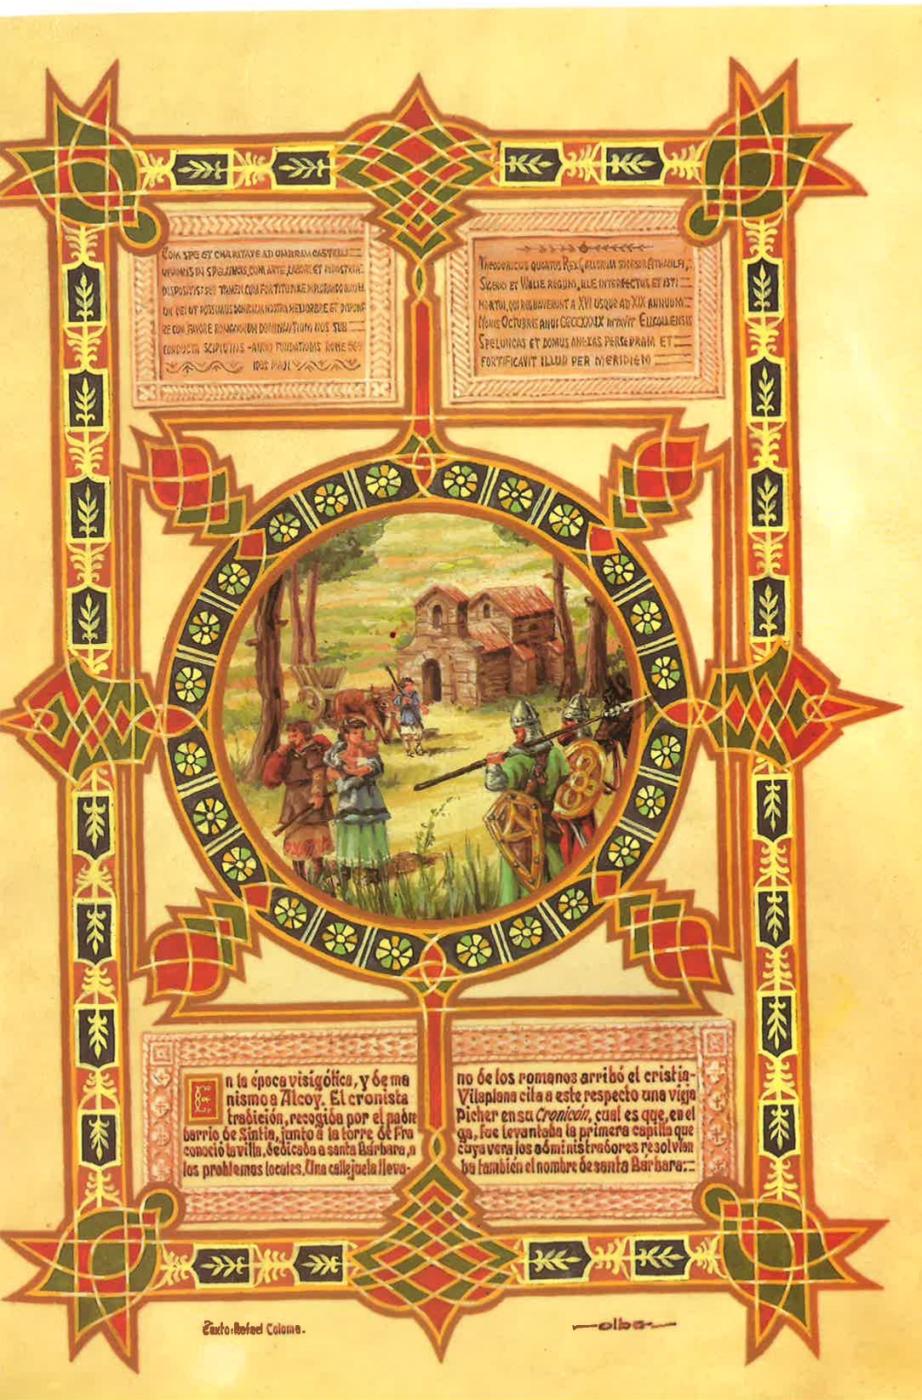 CUM SPE ET CHARITATE AD UMBRAM CASTELLI
VIVAMUS IN SPELUNCIS, CUM ARTE, LABORE ET INDUSTRIA
DISPOSITIS: SET TAMEN CUM FORTITUDINE IMPLORANDO
UT POSSIMUS DOMICILIA NOSTRA MELIORARE ET DISPONE
RE CON FAVORE ROMANORUM DOMINANTIUM NOS SUB
CONDUCTA SCIPIONIS - ANNO FUNDATIONIS ROME 569
IDUS MAII
THEODORICUS QUARTUS REX GALLORUM SUCCESSOR ATHAULFI,
SIGERICI ET WALIE REGUM, ILLE INTERFECTUS ET ISTI
MORTUI, QUI REGNAVERUNT A XVI USQUE AD XIX ANNUM
NONIS OCTUBRIS ANUI CCCCXXXIX INTAVIT ELICOLLENSIS
SPELUNCAS ET DOMUS ANEXAS PERSEDRAM ET
FORTIFICAVIT ILLUD PER MERIDIEM
En la época visigótica, y de ma no de los romanos arribó el cristia-
nismo a Alcoy. El cronista Vilaplana cita a este respecto una vieja
tradición, recogida por el padre Picher en su Cronicón, cual es que, en el
barrio de Sintia, junto a la torre de Fra ga, fue levantada la primera capilla que
conoció la villa, dedicada a santa Bárbara, a cuya vera los administradores resolvían
los problemas locales. Una callejuela lleva- ba también el nombre de santa Bárbara:
Texto: Rafael Coloma.
olba